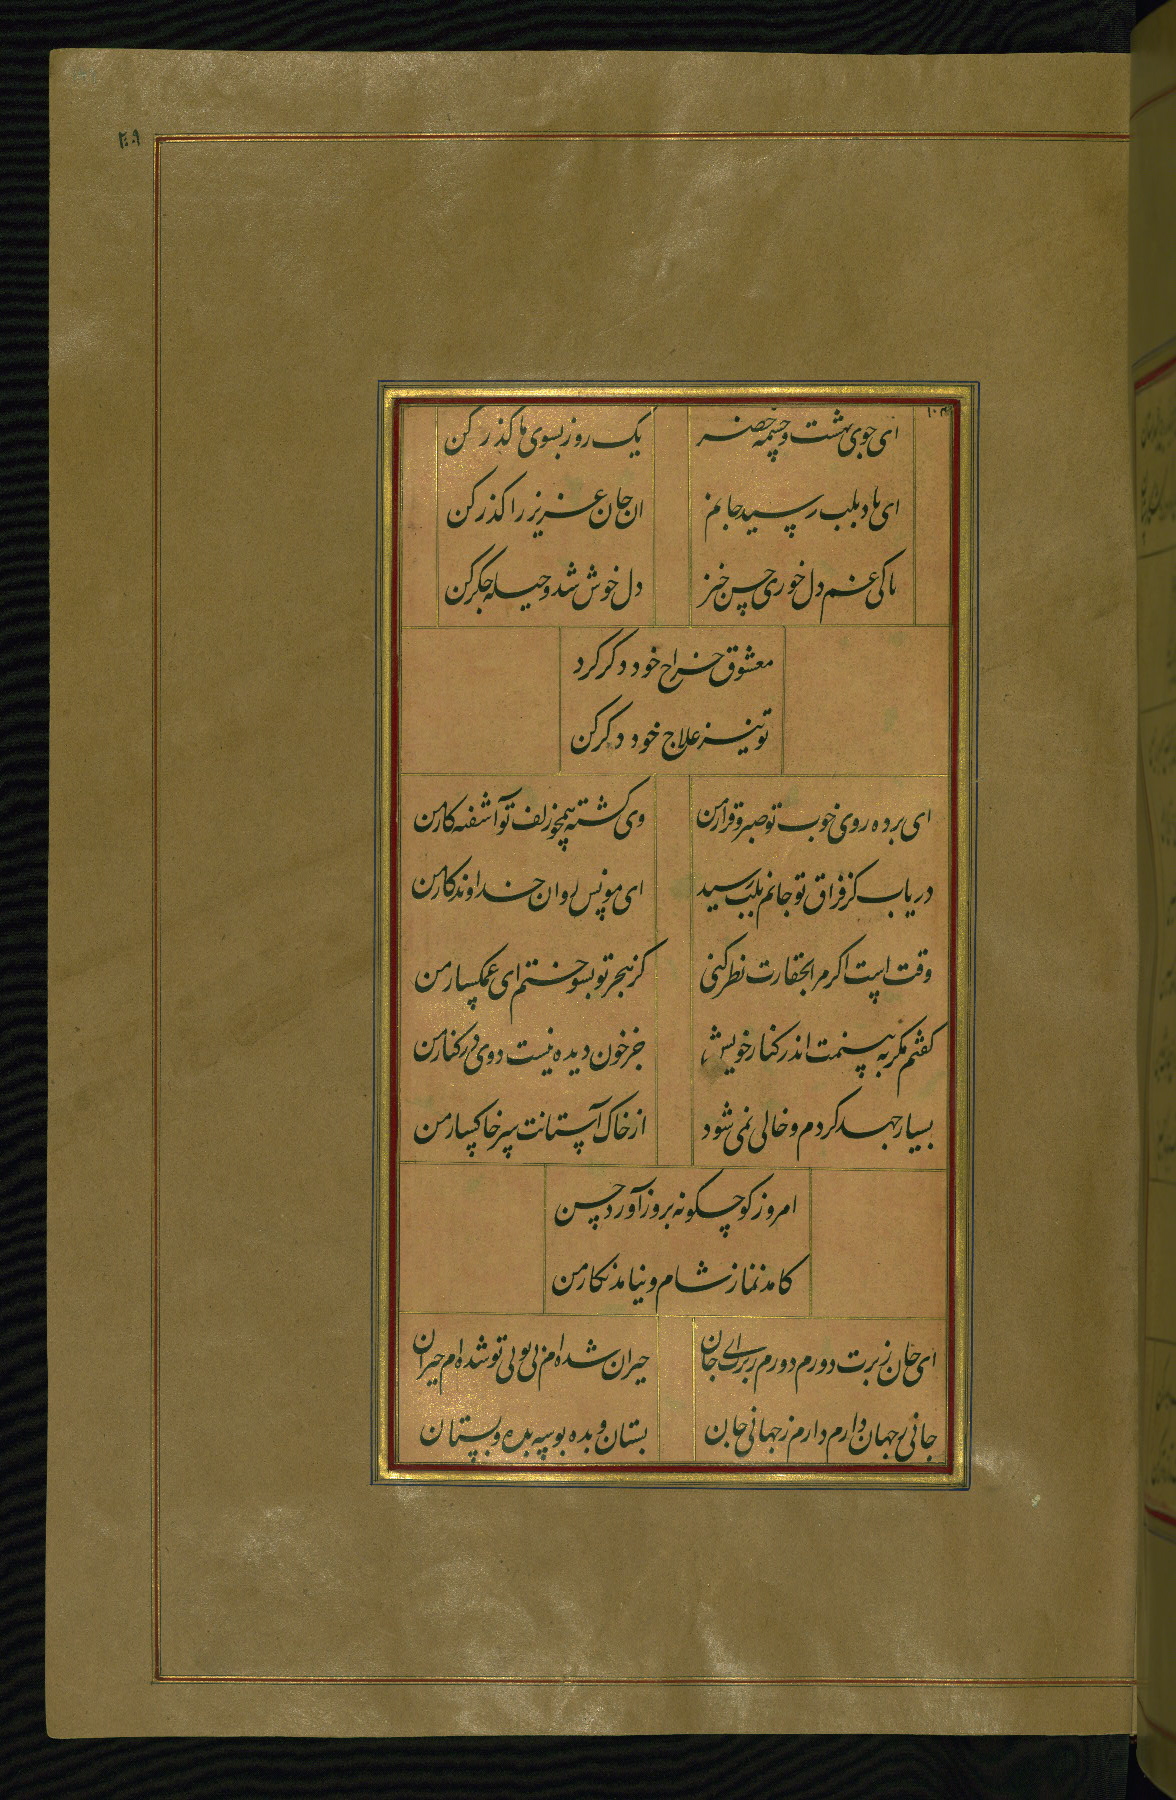 ۴۰۹
۱۰۴
ای جوی بهشت و چشمه خضر یک روز بسوی ما کذر کن
ای ماد بلب رسید جانم ان جان عزیز را کذر کن
تا کی غم دل خوری حسن خیز دل خوش شد و حیله جکر کن
معشوق مزاج خود دکر کرد
تو نیز علاج خود دکر کن
ای برده روی خوب تو صبر و قرار من وی کشته همچو زلف تو آشفته کار من
دریاب کز فراق تو جانم بلب رسید ای مونس روان خداوندکار من
وقت است اکر مرا بحقارت نظر کنی کز هجر تو بسوختم ای غمکسار من
کفتم مکر به بینمت اندر کنار خویش جز خون دیده نیست دوی در کنار من
بسیار جهد کردم و خالی نمی شود از خاک آستانت سر خاکسار من
امروز کو چکونه بروز آورد حسن
کامد نماز شام و نیامد نکار من
ای جان زبرت دورم دورم زبر ای جان حیران شده ام من بی تو بی تو شده ام حیران
جانی ز جهان دارم دارم ز جهانی جان بستان و بده بوسه بده و بستان